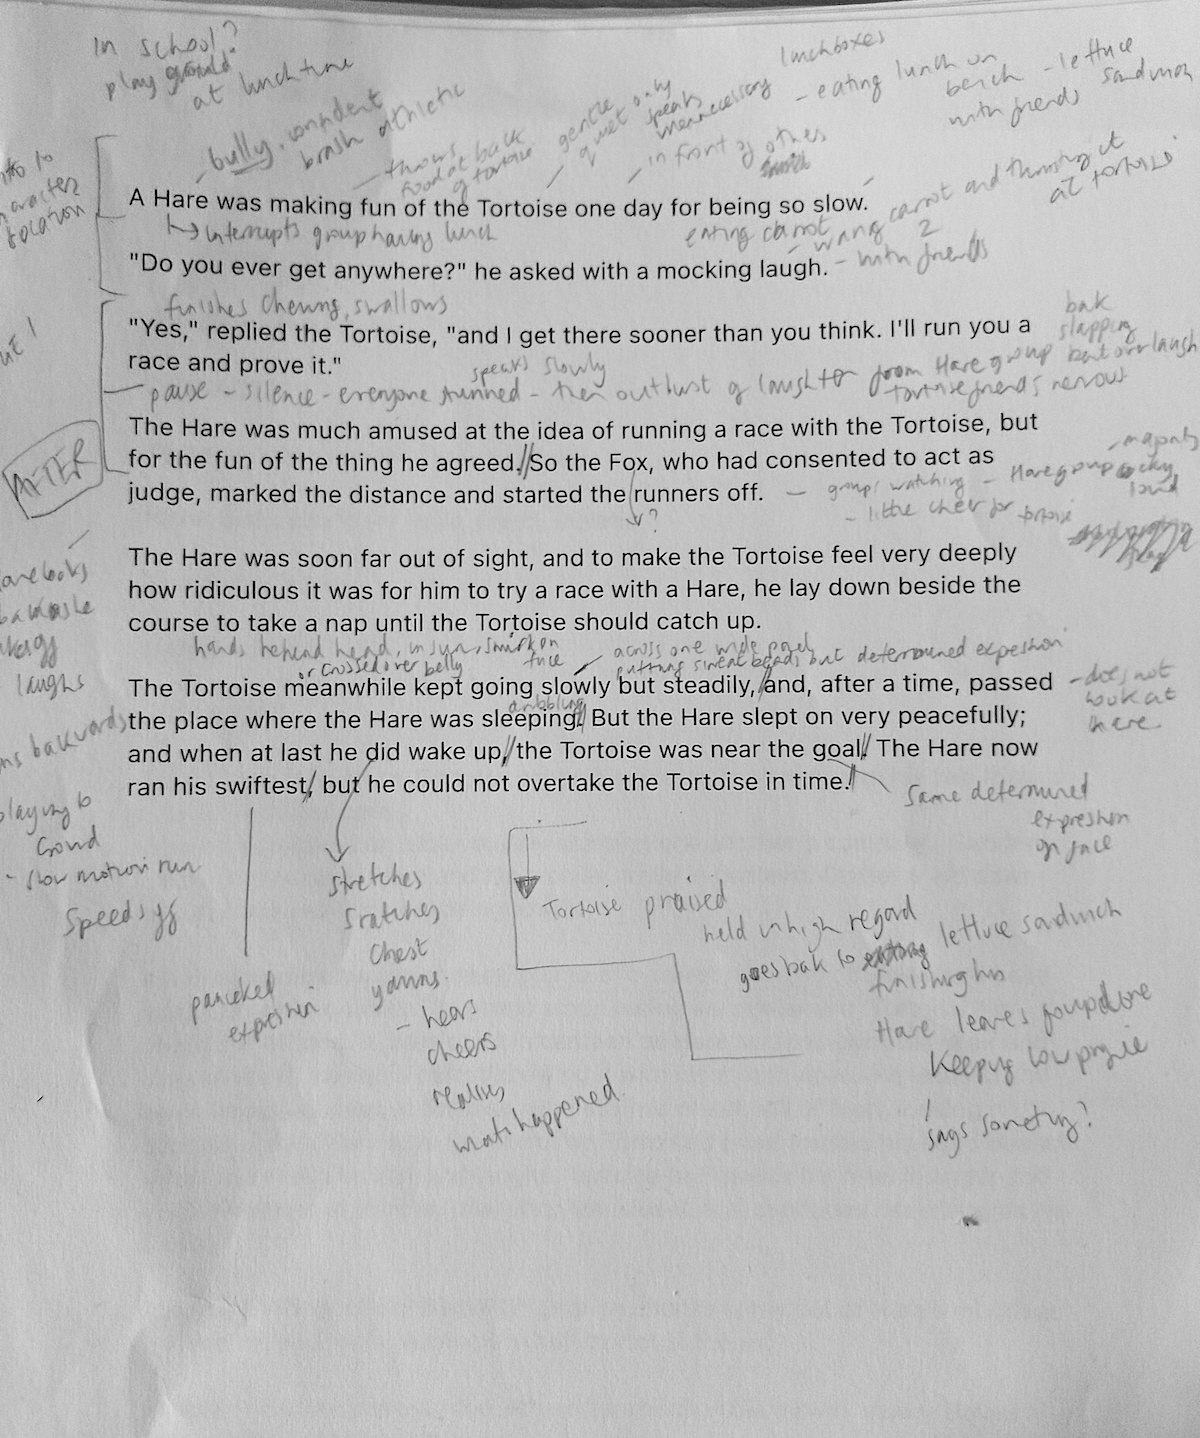 In school?
playground
at lunchtime
lunchboxes
- eating lunch on
bench - lettuce
sandwich
with friends
- bully, confident
brash athletic
- throws
food at back
of tortoise
gentle only
quiet speaks
unnecessary
- in front of others
intro to
character
location
A Hare was making fun of the Tortoise one day for being so slow.
interrupts group having lunch
eating carrot
- waving carrot and thrusting it
at tortoise
"Do you ever get anywhere?" he asked with a mocking laugh.
- with friends
finishes chewing, swallows
"Yes," replied the Tortoise, "and I get there sooner than you think. I'll run you a
race and prove it."
speaks slowly
back
slapping
pause - silence - everyone stunned - then outburst of laughter from Hare group
tortoise friends nervous
AFTER
The Hare was much amused at the idea of running a race with the Tortoise, but
for the fun of the thing he agreed. So the Fox, who had consented to act as
judge, marked the distance and started the runners off.
- groups watching - Hare group cocky
loud
- majority
- little cheer for tortoise
?
The Hare was soon far out of sight, and to make the Tortoise feel very deeply
how ridiculous it was for him to try a race with a Hare, he lay down beside the
course to take a nap until the Tortoise should catch up.
laughs
hands behind head, in sun, smirk on
face
or crossed over belly
across one wide panel
putting sweat beads but determined expression
The Tortoise meanwhile kept going slowly but steadily, and, after a time, passed
- does not
look at
here.
dribbling
the place where the Hare was sleeping. But the Hare slept on very peacefully;
and when at last he did wake up, the Tortoise was near the goal. The Hare now
ran his swiftest, but he could not overtake the Tortoise in time.
backwards
playing to
crowd
- slow motion run
speeds off
Same determined
expression
on face
panicked
expression
stretches
scratches
chest
yawns
- hears
cheers
realises
whats happened
Tortoise praised
held in high regard
goes back to
finishing his
lettuce sandwich
Hare leaves
keeping low profile
says something?